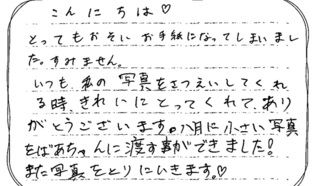 こんにちは♡
とってもおそい お手紙になってしまいまし
た。すみません。
いつも 私の 写真をさつえいしてくれ
る時、きれいにとってくれて、あり
がとうございます。八月に小さい写真
をばあちゃんに渡す事ができました!
また写真をとりにいきます。♡